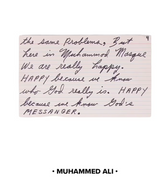 4
the same Problems, But
here in Muhammod Mosque
We are really Happy.
HAPPY because we Know
who God really is. HAPPY
because we Know God's
MESSANGER.
• MUHAMMED ALI •